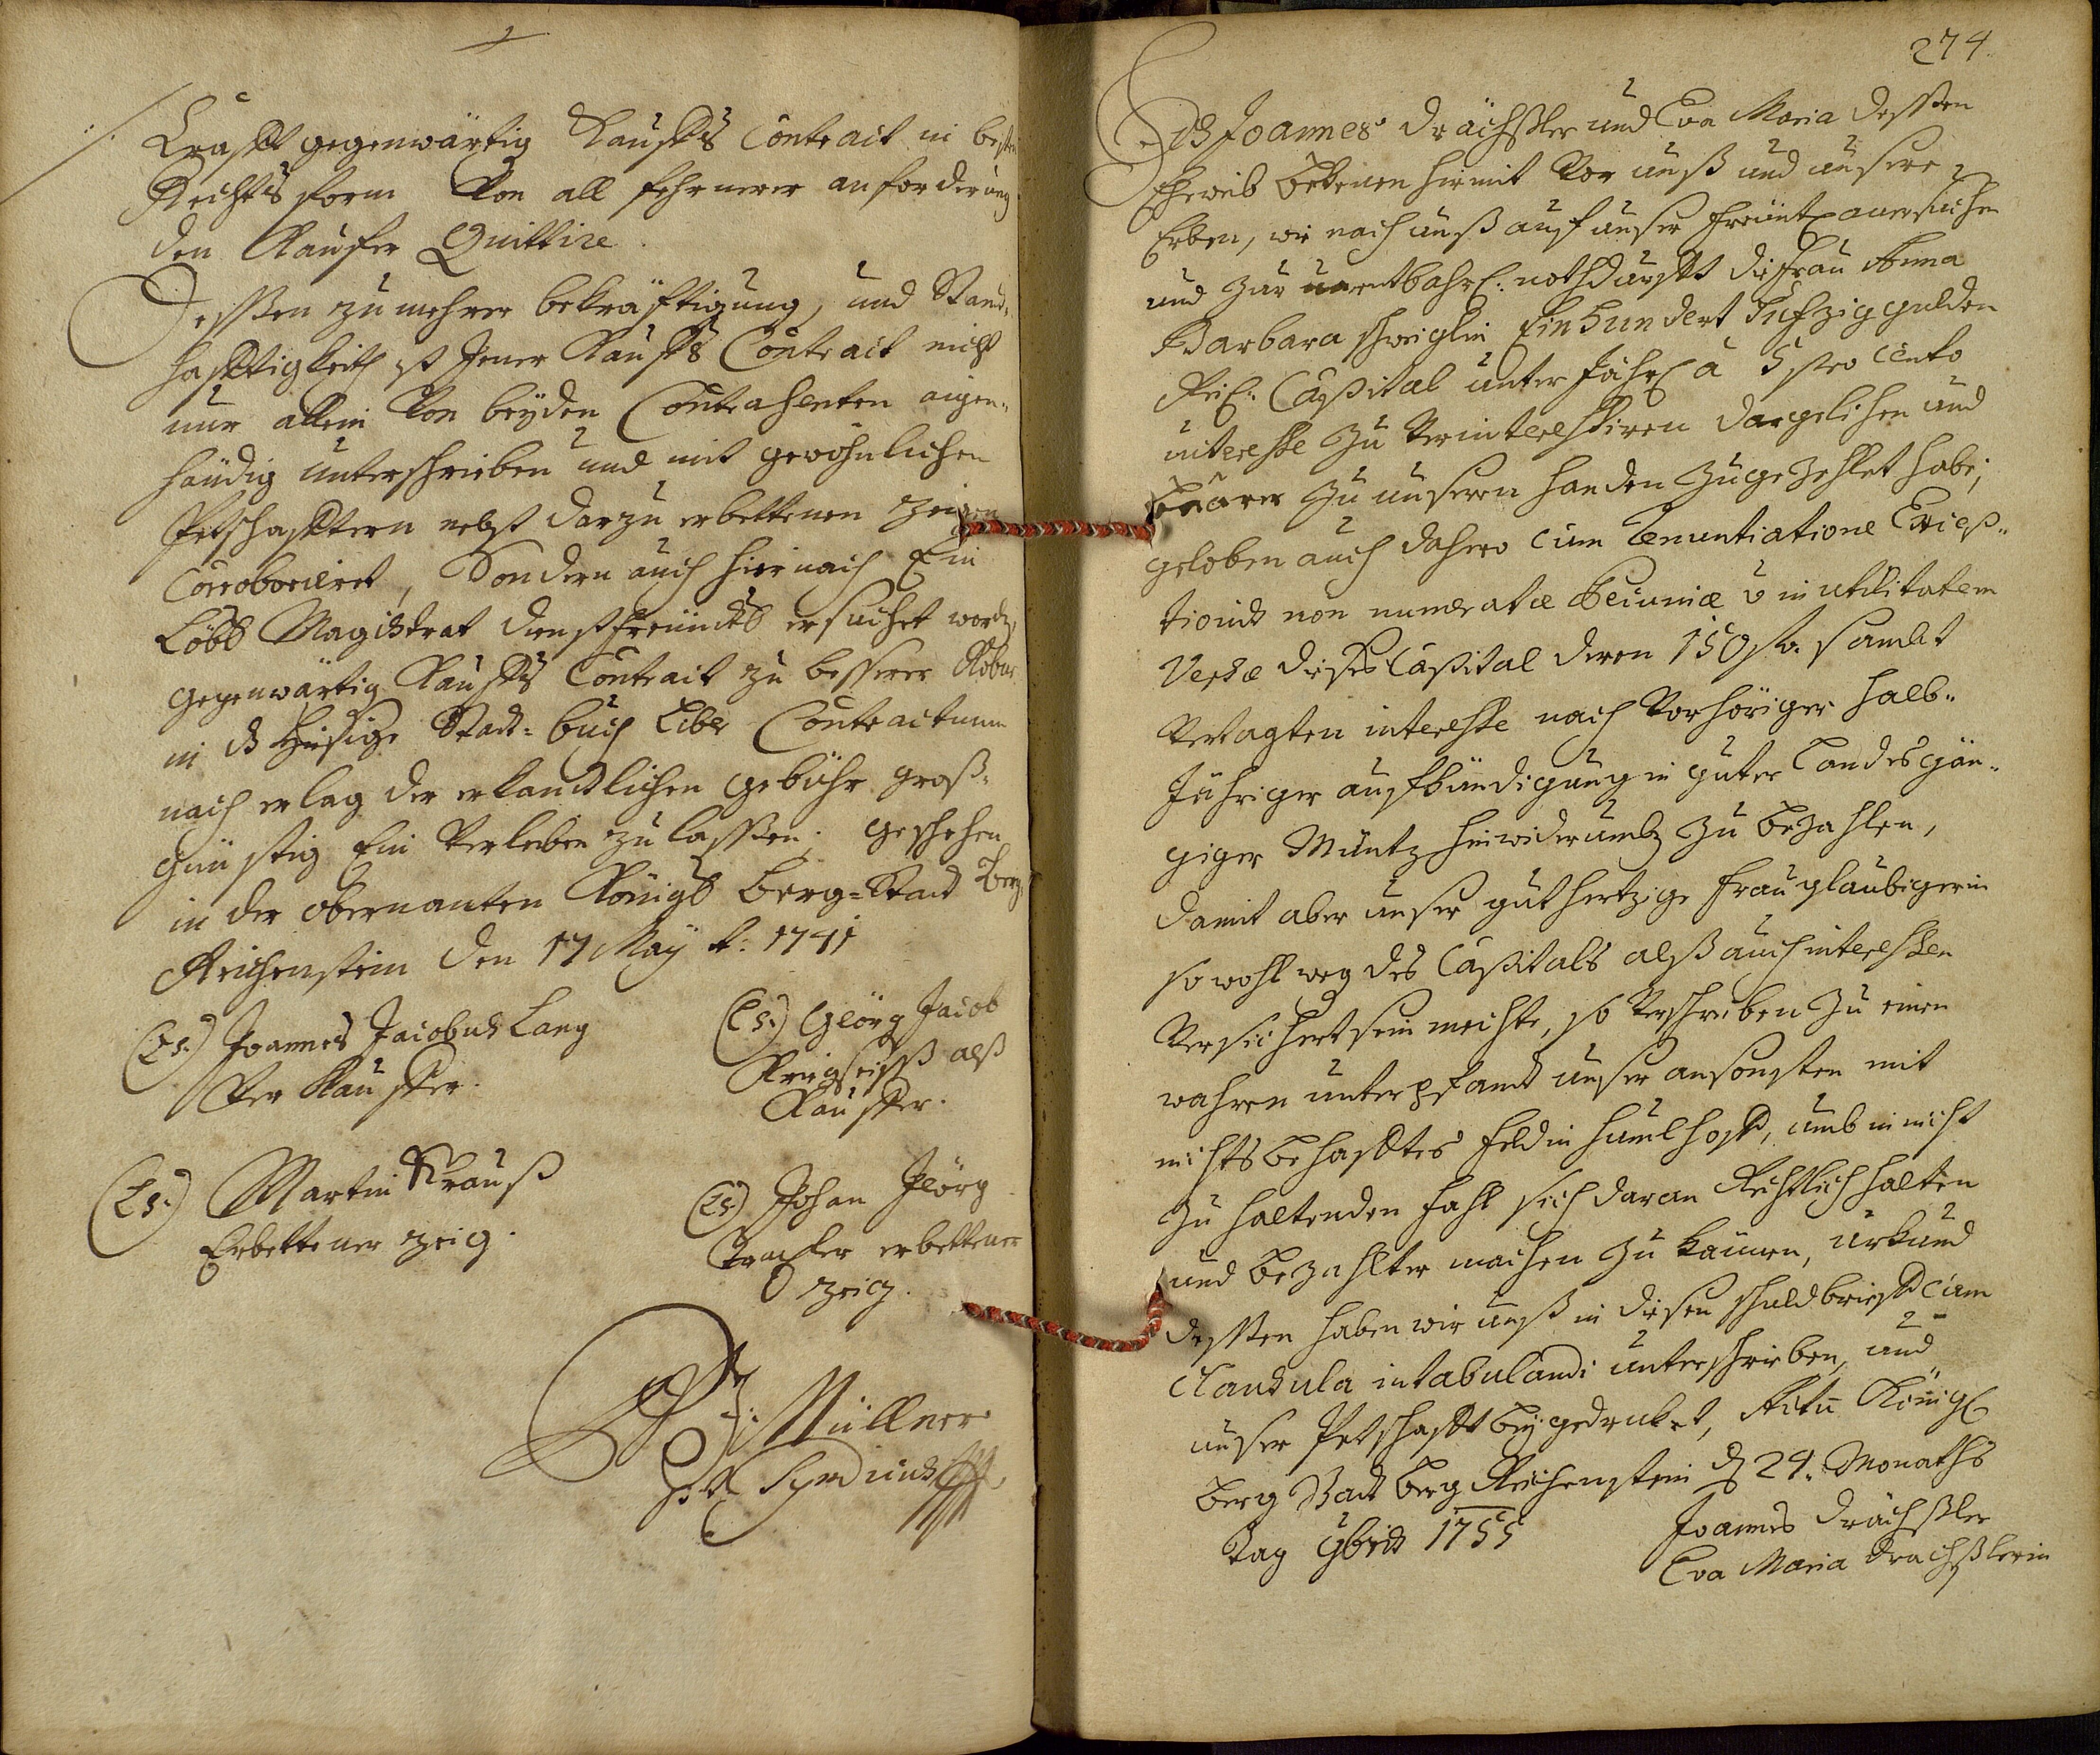 Krafft gegenwärtig Kauffs Contract in besten
Rechts form von all fehrnerer anforderung
den Kauffer Quittire.
Dessen zu mehrer bekräfftigung, und Stand-
hafftigkeith ist Jener Kauffs Contract nicht
nur allein von beyden Contrahenten aigen-
händig unterschrieben und mit gewöhnlichen
Petschafftern nebst darzu erbettenen Zeigen
Corroboriret, Sondern auch hiernach Ein
Löbl Magistrat dienstfreundl ersuchet worden,
gegenwärtig Kauffs Contract zu besserer Robur
in hiesige Stadt-buch Libr Contractuum
nach erlag der erkandtlichen gebühr groß-
günstig Ein Verleiben zu lassen; geschehen
in der obernanten Königl Berg-Stadt Berg
Reichenstein den 17 May A: 1741
(Ls.) Joannes Jacobus Lang
Ver Kauffer.
(Ls.) Geörg Jacob
alß
Kauffer.
(Ls.) Martin Krauß
Erbettener zeig.
(Ls) Johan Geörg
erbettener
zeig.
Müllner
Syndicus
274.
Ich Joannes Drächßler und Eva Maria dessen
Eheweib bekenen hiermit vor unß und unsere
Erben, wie nach unß auf unser freundl anersuchen
und zur unentbährl: nothdurfft die frau Anna
Barbara Einhundert Fufzig gulden
Reich: Capital unter Jährl à 5 pro Cento
interesse zu verinteressiren dargelihen und
baares zu unseren handen zugezehlet habe;
geloben auch dahero cum renuntiatione Excep-
tionis non numeratæ Pecuniæ in utilitatem
Versæ dieses Capital deren 150 fl. sambt
vertagten interesse nach vorhöriger halb-
Jähriger aufkündigung in guter Landes gän-
giger Müntz hinwiderumb zu bezahlen,
damit aber unser guthertzige frau glaubigerin
so wohl weg des Capitals alß auch interessen
versichert sein mechte, so verschreiben zu einen
wahren unterpfandt unser ansonsten mit
nichts behafftes feld in, umb in nicht
zu haltenden fahl sich daran Rechtlich halten
und bezahlter machen zu können, urkund
dessen haben wir unß in diesen schuldbrieff cum
Clausula intabulandi unterschrieben, und
unser Petschafft beygedruket, Actu Königl
Berg Stadt Berg Reichenstein d 24. Monaths
Tag 9bris 1755
Joannes Drächßler
Eva Maria Drachßlerin